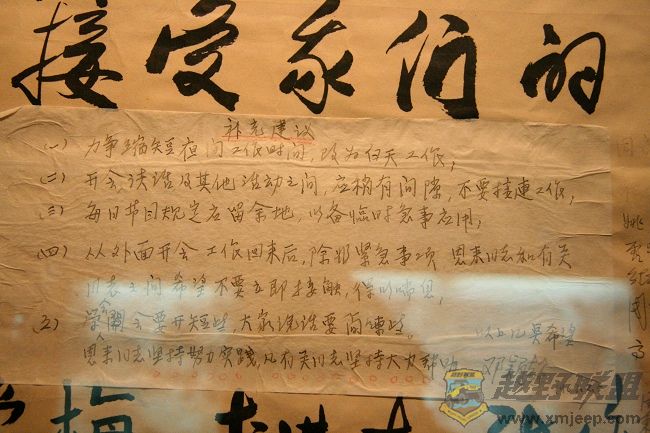 接受我们的
补充建议
(一) 力争缩短夜间工作时间,改为白天工作,
(二) 开会、谈话及其他活动之间,应稍有间隙,不要接连工作,
(三) 每日节目规定应留余地,以备临时急事应用,
(四) 从外面开会工作回来后,除非紧急事项 恩来同志和有关
同志之间希望不要立即接触,得以喘息,
(五) 会要开短些,大家说话要简练些。 以上几点希望
恩来同志坚持努力实践,凡有关同志坚持大力帮助 邓颖超
梅
越野联盟
www.xmjeep.com